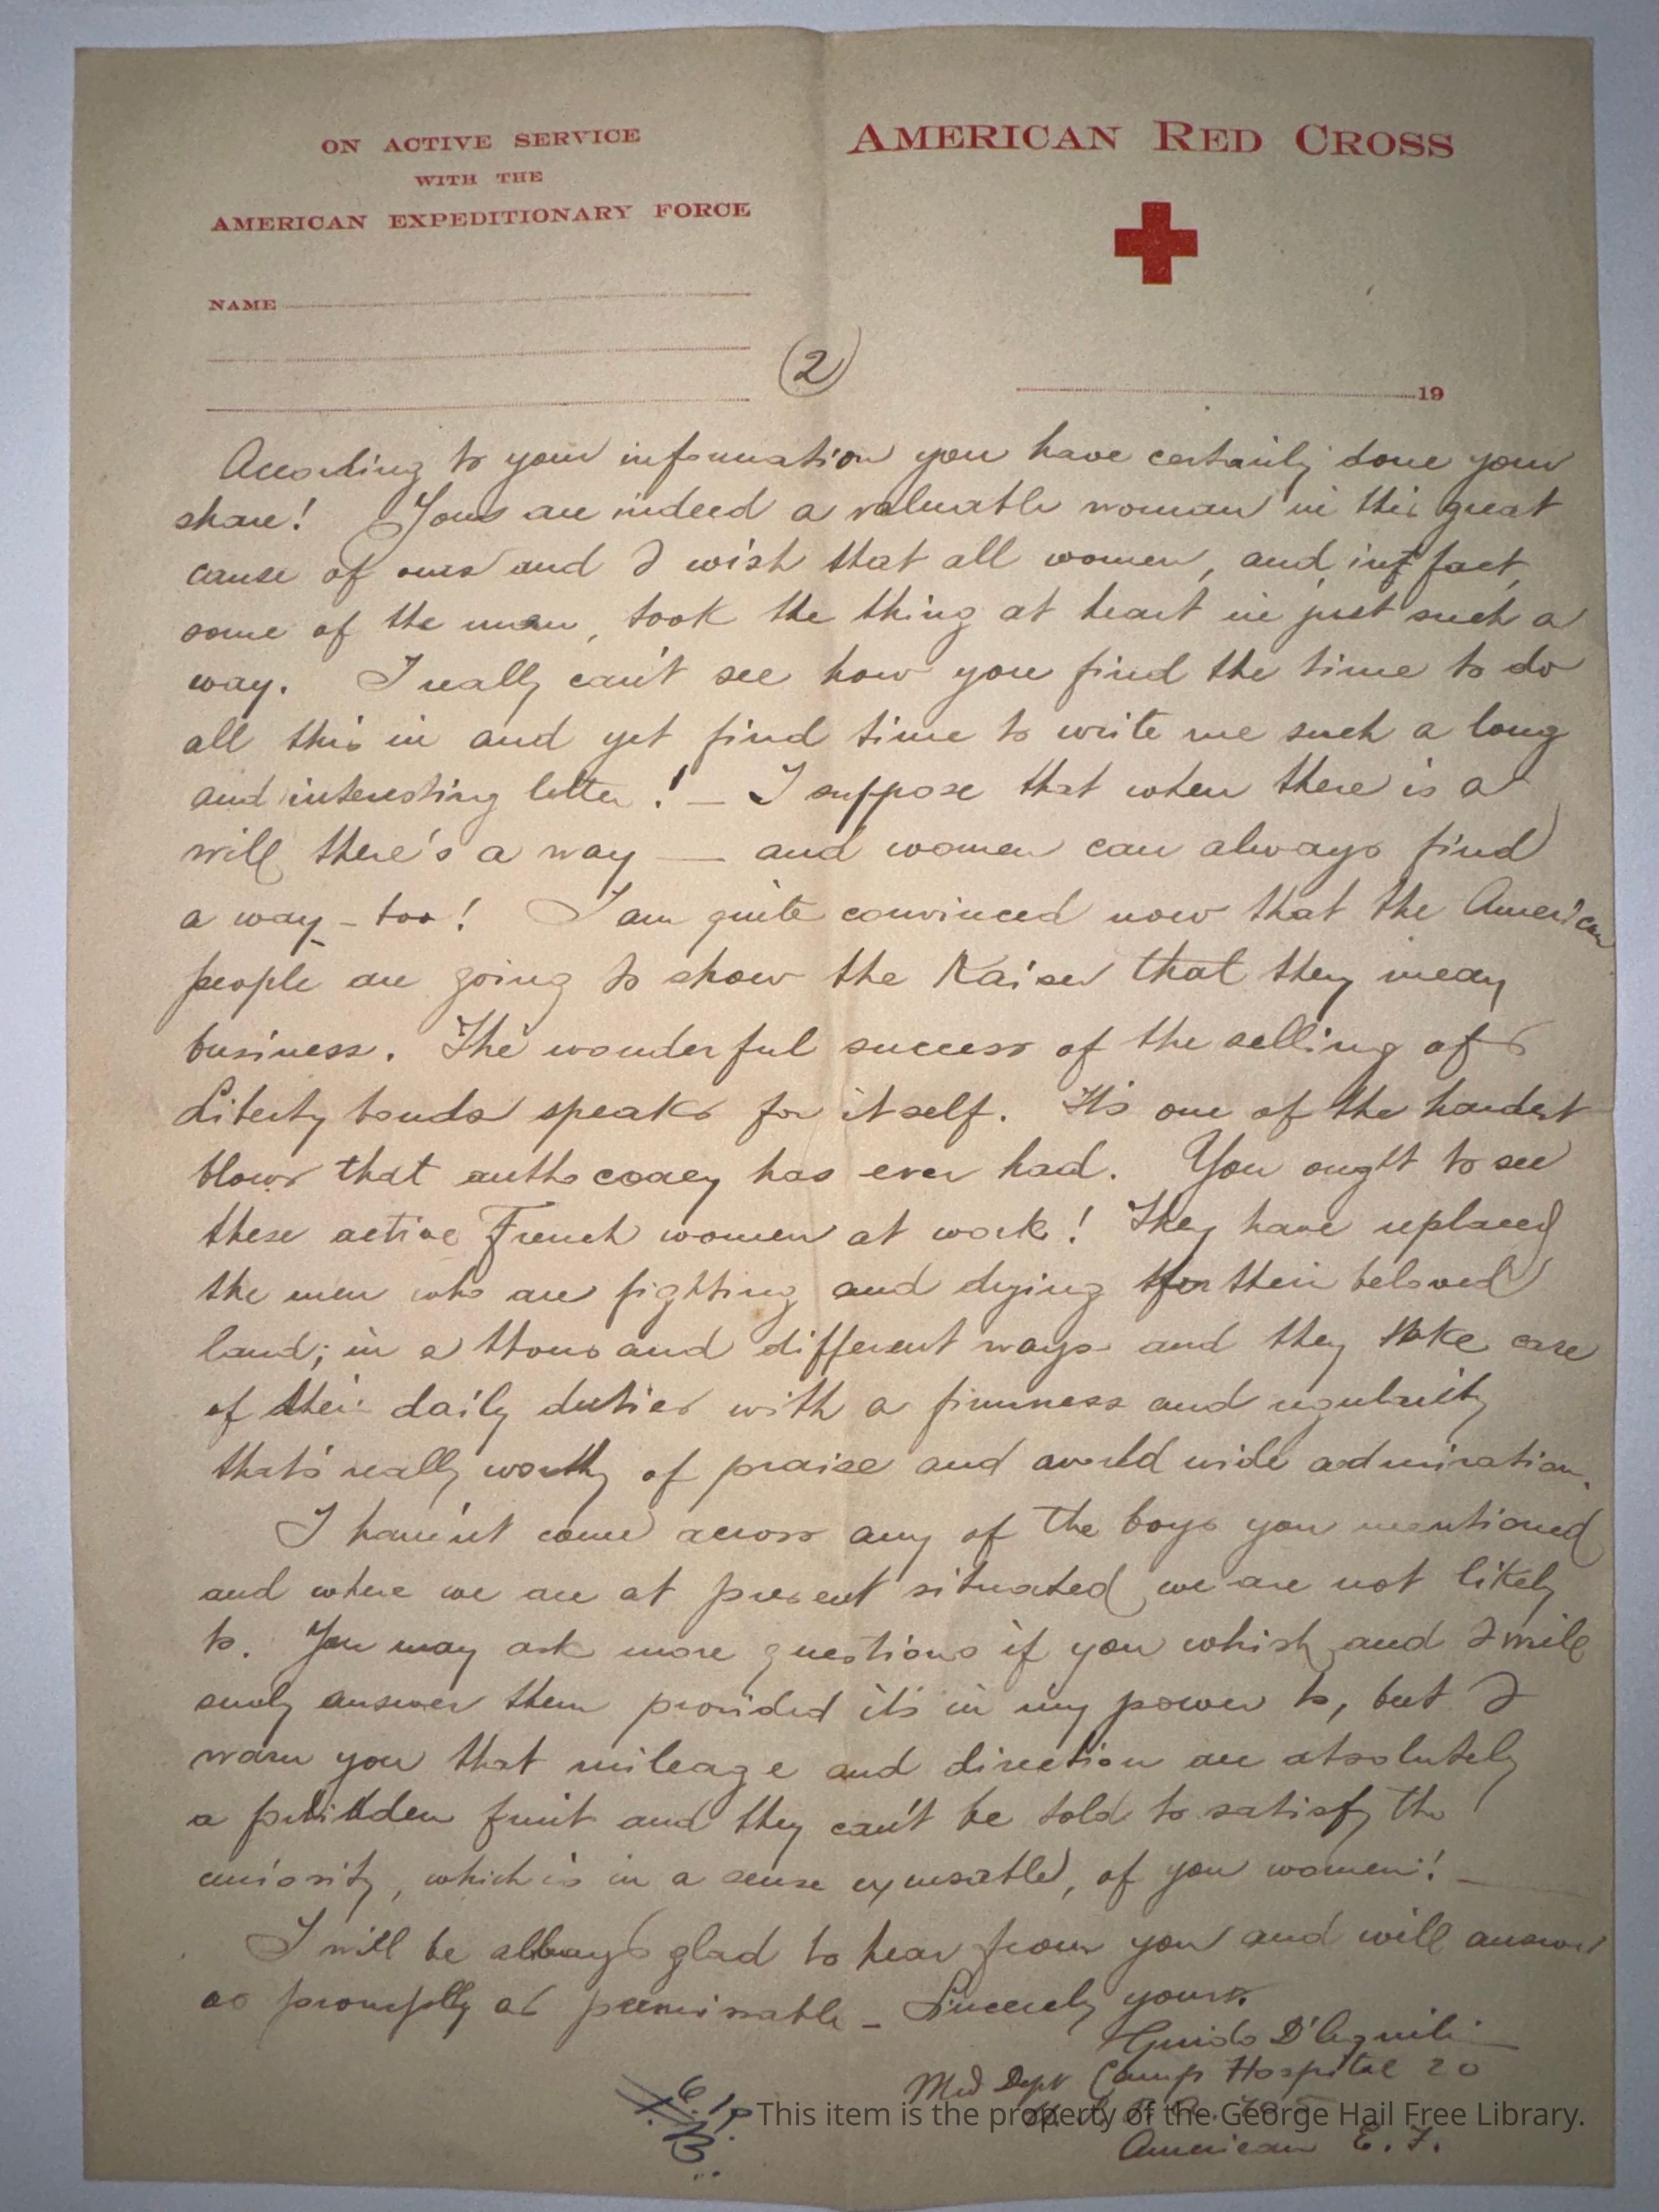 ON ACTIVE SERVICE
WITH THE
AMERICAN EXPEDITIONARY FORCE
AMERICAN RED CROSS
NAME
19
2
According to your information you have certainly done your
share! Your are indeed a valuable woman in this great
cause of ours and I wish that all women, and, in fact,
some of the men, took the thing at heart in just such a
way. I really can't see how you find the time to do
all this in and yet find time to write me such a long
and interesting letter! — I suppose that when there is a
will there's a way — and women can always find
a way - too! I am quite convinced now that the American
people are going to show the Kaiser that they mean
business. The wonderful success of the selling of
Liberty bonds speaks for itself. It's one of the hardest
blows that authocracy has ever had. You ought to see
these active French women at work! They have replaced
the men who are fighting and dying for their beloved
land; in a thousand different ways and they take care
of their daily duties with a firmness and regularity
that's really worthy of praise and world wide admiration.
I haven't come across any of the boys you mentioned
and where we are at present situated we are not likely
to. You may ask more questions if you whish and I will
surely answer them provided it's in my power to, but I
warn you that mileage and direction are absolutely
a fruit and they can't be told to satisfy the
curiosity, which is in a sense excusable, of you women! —
I will be always glad to hear from you and will answer
as promptly as permissable - Sincerely yours
Guido
Med Dept Camp Hospital 20
American E. F.
This item is the property of the George Hail Free Library.